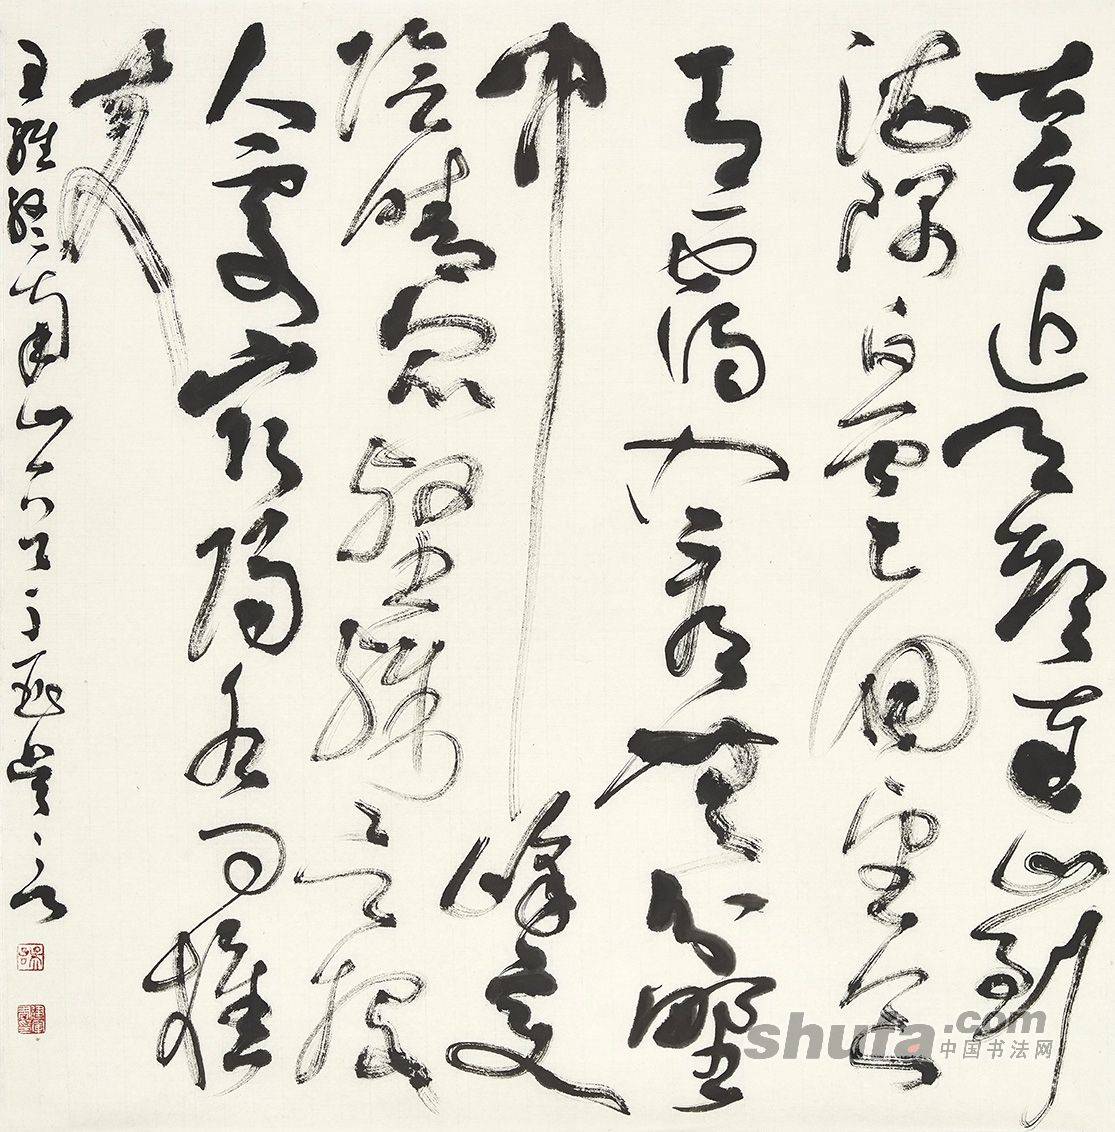 太乙近天都連山到
海隅白雲迴望合
青靄入看無分野
中峰變
陰晴眾壑殊欲投
人處宿隔水問樵
夫
王維終南山
shufa.com
中国书法网